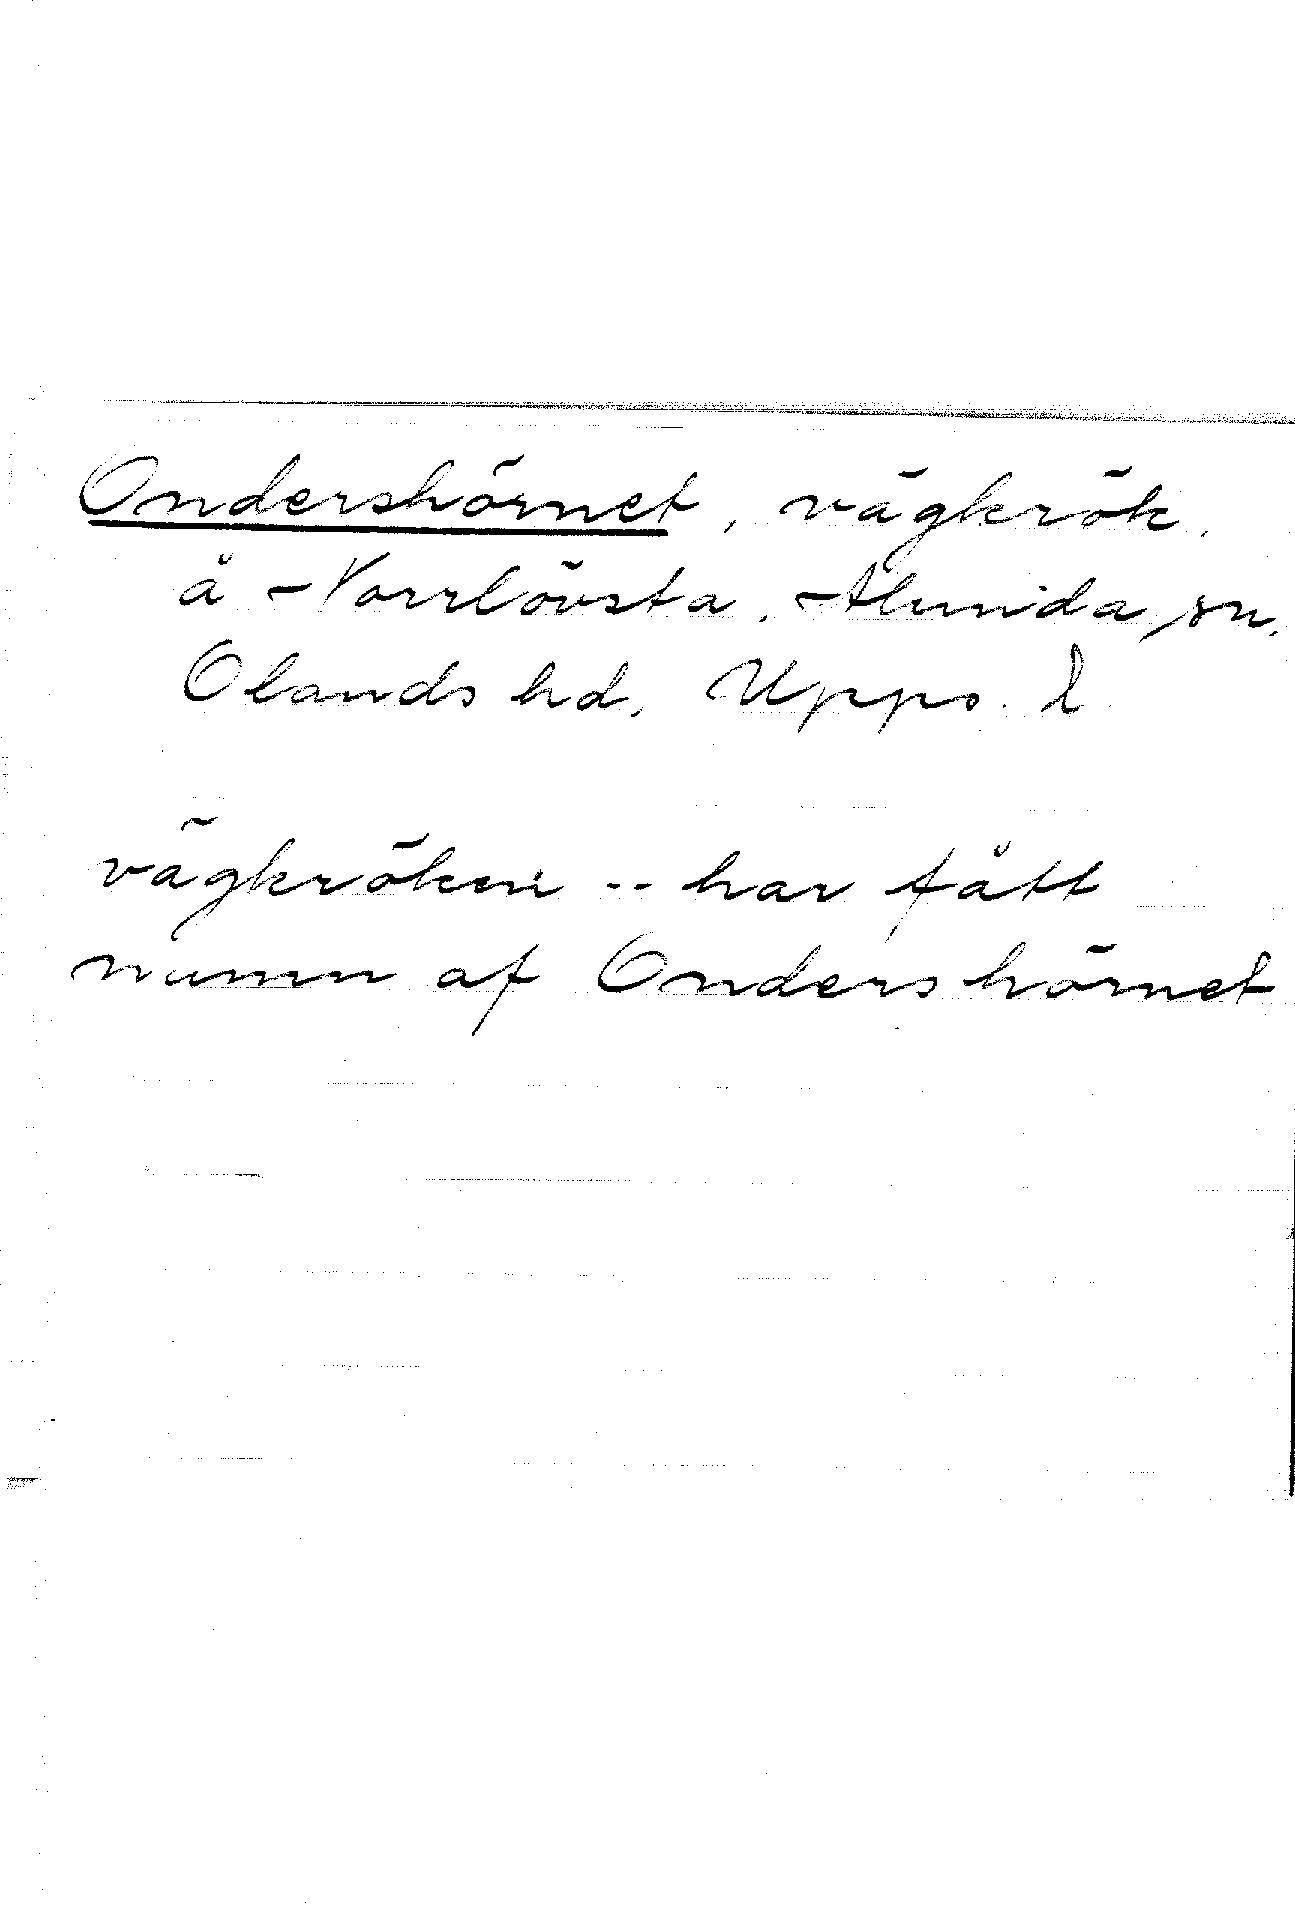 Ondershörnet, vägkrök,
å Norrlövsta, Alunda sn.
Olands hd, Upps. l
vägkröken -- har fått
namn af Onders hörnet